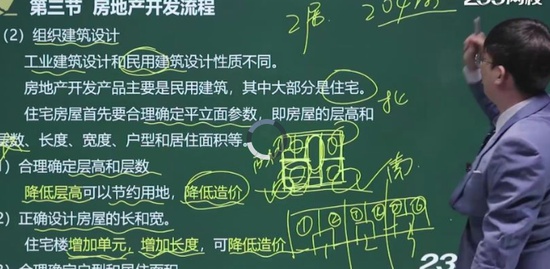 第三节 房地产开发流程
2居
(2) 组织建筑设计
工业建筑设计和民用建筑设计性质不同。
房地产开发产品主要是民用建筑，其中大部分是住宅。
北
住宅房屋首先要合理确定平立面参数，即房屋的层高和
层数、长度、宽度、户型和居住面积等。
1) 合理确定层高和层数
南
降低层高可以节约用地，降低造价
2) 正确设计房屋的长和宽。
① ②
住宅楼增加单元，增加长度，可降低造价
23
合理确定户型和居住面积